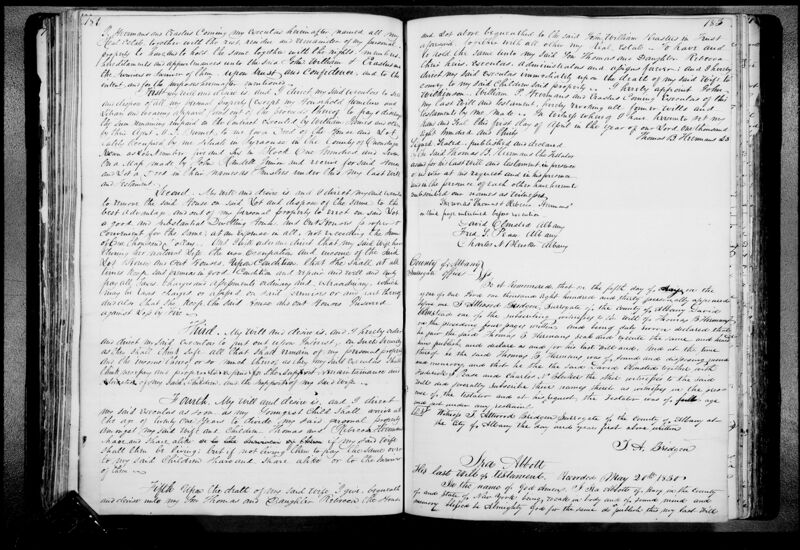 184
B. Hermans and Erastus Corning my executors herein after named all my
Real Estate, together with the rest, residue and remainder of my personal
property to have and to hold the same together with the rights, members
hereditaments and appurtenances unto the said John William & Erastus
the survivors or survivor of them, upon trust and confidence, and to the
intent and for the purposes hereinafter mentioned.
First
and dispose of all my personal property (except my Household Furniture and
Wearing apparel) and out of the proceeds thereof to pay
the sum remaining unpaid in the contract executed by William James
by their Agent to me for a Deed of the House and Lot
lately occupied by me situate in Syracuse in the County of Onondaga
Known as Lot Number in Block One Hundred and
Map made by John Randell Junior and receive for said House
and Lot a Deed in their Names as Trustees under this My Last Will
and Testament.
Second. My will and desire is, and I direct my executors
to remove the said House on said Lot and dispose of the same to the
best advantage, and out of my personal property to erect on said Lot
a good and substantial Dwelling House and Out Houses
Convenient for the same, at an expense in all, not exceeding the sum
of One Thousand Dollars. And I do order and direct that my said wife have
during her natural life the use Occupation and income of the said
Lot House and Out Houses Upon Condition that she shall at all
times keep said premises in good Condition and repair and well and duly
pay all Taxes Charges and assessments ordinary and extraordinary which
may be taxed charged or imposed on said premises or any part thereof
and also that she keep the said House and Out Houses Insured
against loss by fire.
Third. My Will and desire is, and I hereby order
and direct my said Executors to put out upon Interest, on such security
as they shall think safe all that shall remain of my personal property
after the means thereof as they my said executors shall
think necessary and proper for the Support Maintenance and
Education of my said Children and the support of my said wife.
Fourth. My will and desire is, and I direct
my said Executors as soon as my Youngest Child shall arrive at
the age of twenty One Years to divide my said personal property
amongst my said wife and Children Thomas and Rebecca Hermans
share and share alike if my said wife
shall then be living, but if not living then to pay the same over
to my said Children share and share alike or to the survivor
of them.
Fifth Upon the death of my said Wife I give, bequeath
and devise unto my Son Thomas and Daughter Rebecca the House
185
and Lot above bequeathed to the said John, William & Erastus in Trust
aforesaid together with all other my Real Estate. To have and
to hold the same unto my said Son Thomas and Daughter Rebecca
their heirs executors administrators and assigns forever: and I hereby
direct my said Executors immediately upon the death of my said Wife to
convey to my said Children said property. I hereby appoint John
Wilkinson, William B. Hermans and Erastus Corning Executors of this
my Last Will and testament, hereby revoking all former wills and
testaments by me made. In witness whereof I have hereunto set my
hand and seal this first day of April in the year of our Lord One thousand
eight hundred and thirty
Thomas B. Hermans LS
Signed Sealed, published and declared
by the said Thomas B. Hermans the testator
as and for his Last Will and testament in presence
of us who at his request and in his presence
and in the presence of each other have hereunto
subscribed our names as witnesses.
The words Thomas & Rebecca Hermans
in third page interlined before execution
David Olmsted Albany
Fred. J. Pease Albany
Charles N. Bleecker Albany
County of Albany
Surrogate's Office } ss.
Be it Remembered, that on the fifth day of May in the
year of our Lord one thousand eight hundred and thirty personally appeared
before me T. Attwood Bridgen, Surrogate of the County of Albany David
Olmsted one of the subscribing witnesses to the will of Thomas B. Hermans
on the preceding four pages written and being duly sworn declared that
he saw the said Thomas B. Hermans seal and execute the same, and heard
him publish and declare it as his last will and. And at the time
thereof he the said Thomas B. Hermans was of sound and disposing mind
and memory and that he the said David Olmsted together with
Frederick J. Pease and Charles N. Bleecker the other witnesses to the said
will did severally subscribe their names thereto as witnesses in the presence
of the testator and at his request, the testator was of full age
and not under any restraint.
Witness T. Attwood Bridgen Surrogate of the County of Albany at
the City of Albany the day and year first above written
T. A. Bridgen
Ira Abbott
His last Will & testament. Recorded May 20th 1830
In the name of God Amen, I Ira Abbott of in the County
of and State of New York being weak in body and of sound mind and
memory blessed be Almighty God for the same do publish this my last Will